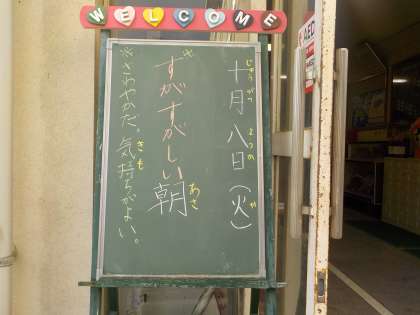 WELCOME
AED
じゅうがつ
十月八日(火)
※
すがすがしい朝
あさ
※さわやかだ。気持ちがよい。
きも